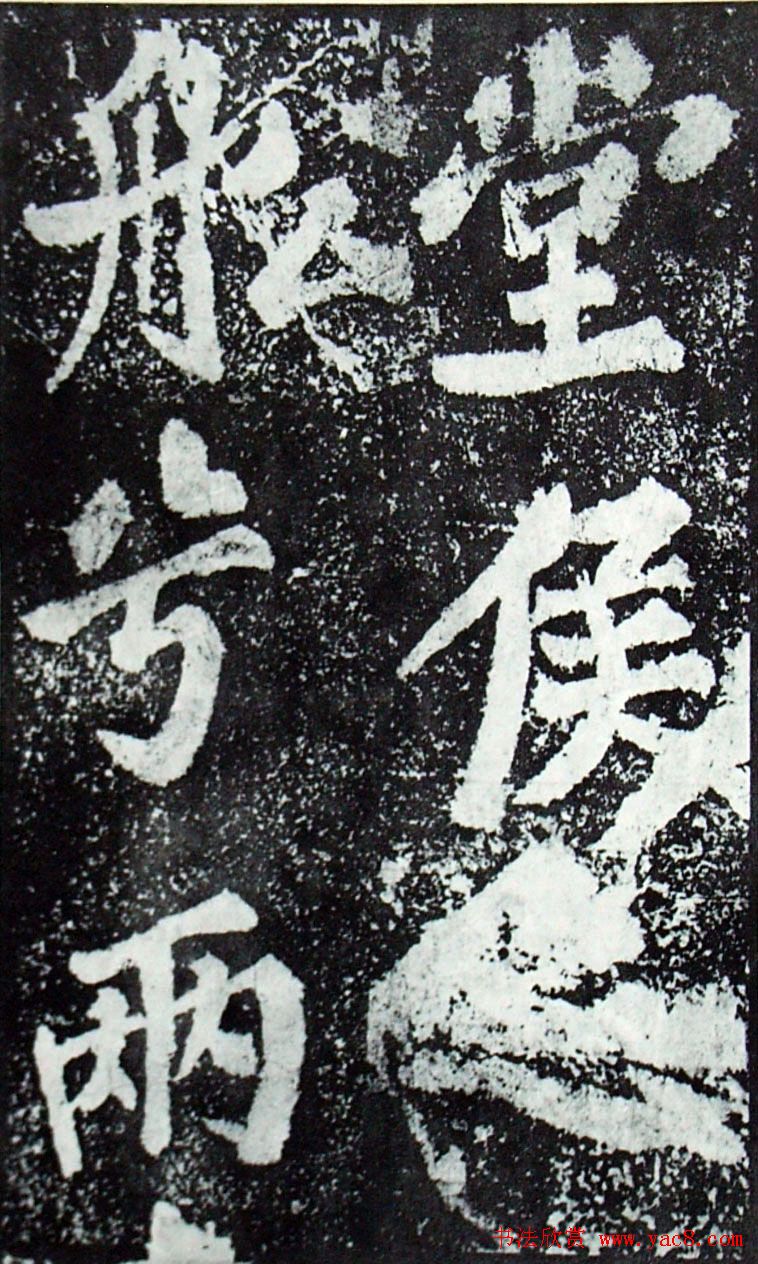 堂侯之
船兮兩
书法欣赏 www.yac8.com